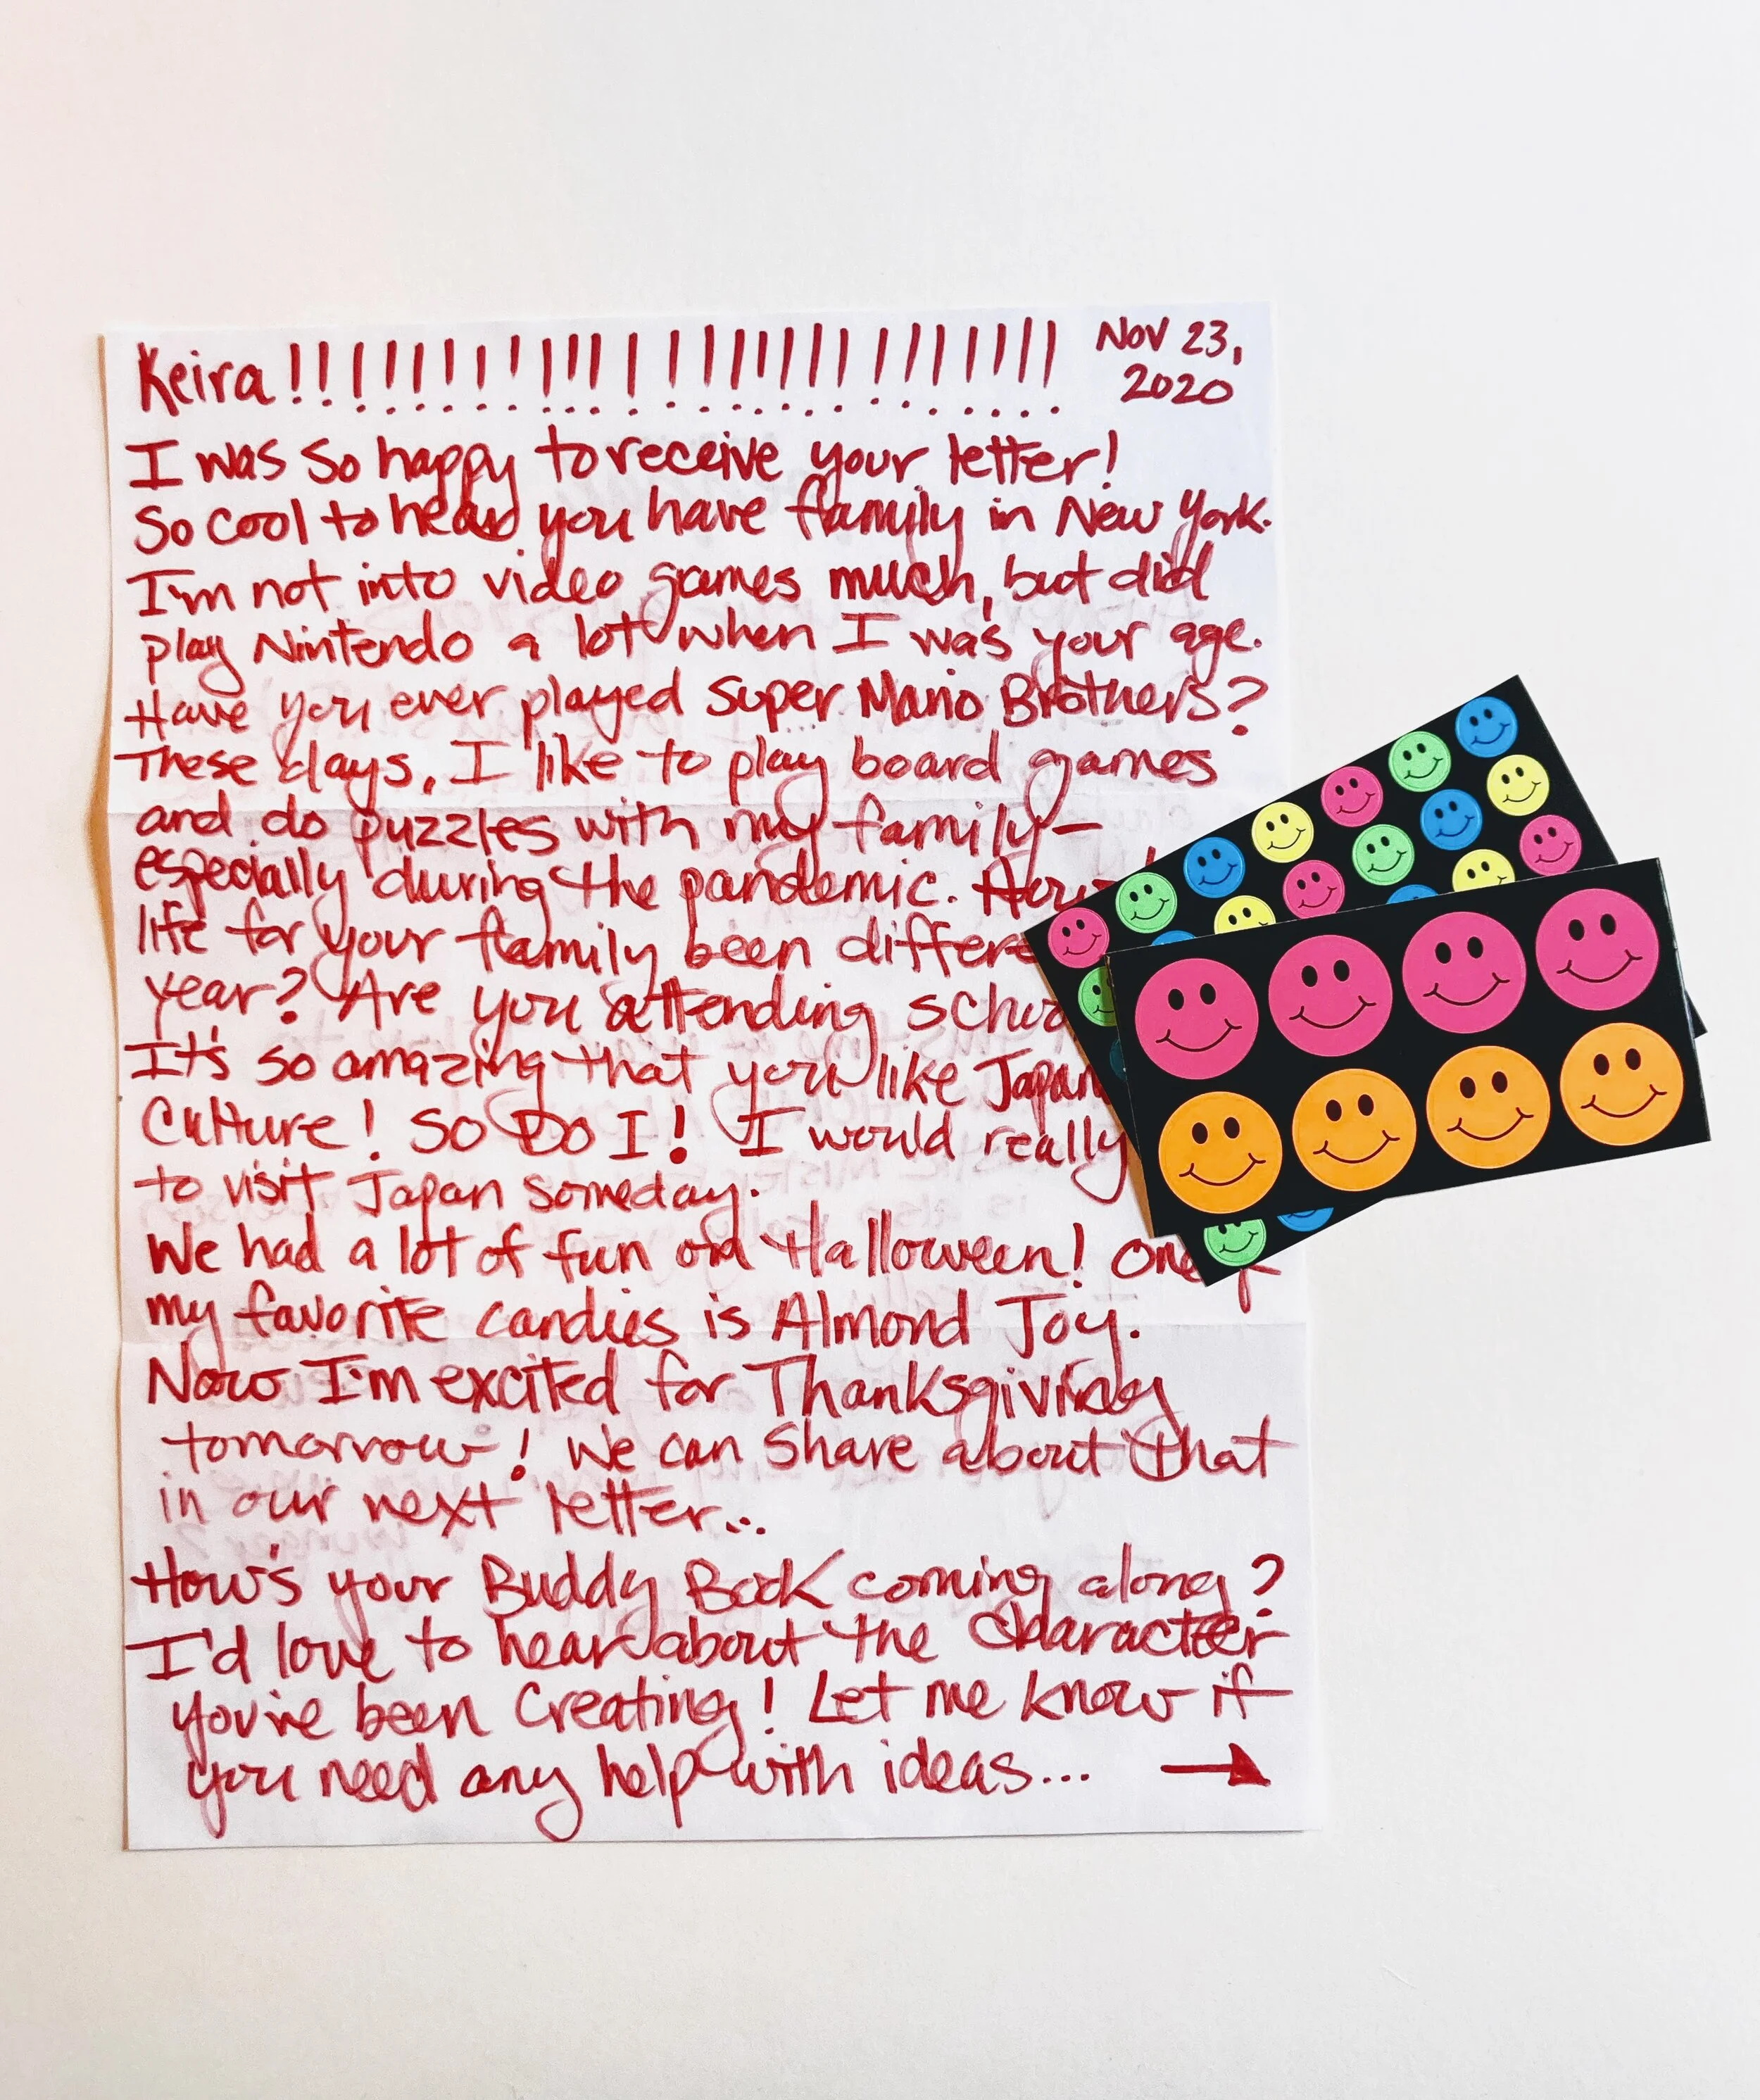 Keira!!!!!!!!!!!!!!!!!!!!!!!!!!!
Nov 23,
2020
I was so happy to receive your letter!
So cool to hear you have family in New York.
I'm not into video games much, but did
play Nintendo a lot when I was your age.
Have you ever played Super Mario Brothers?
These days, I like to play board games
and do puzzles with my family-
especially during the pandemic.
life for your family been
year? Are you attending
It's so amazing that you like
Culture! SO DO I! I would really
to visit Japan someday.
We had a lot of fun on Halloween! One
my favorite candies is Almond Joy.
Now I'm excited for Thanksgiving
tomorrow! We can share about that
in our next letter...
How's your Buddy Book coming along?
I'd love to hear about the character
you've been creating! Let me know if
you need any help with ideas... →